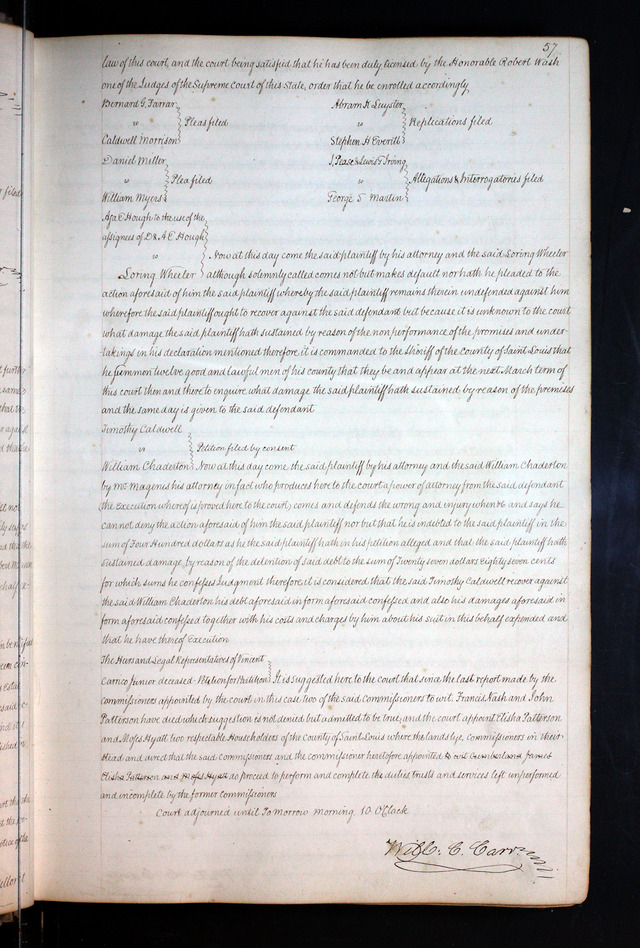 57
law of this court, and the court being satisfied that he has been duly licensed by the Honorable Robert Wash
one of the Judges of the Supreme Court of this State, order that he be enrolled accordingly
Bernard G. Farrar
vs Pleas filed
Caldwell Morrison
Abram H Luyster
vs Replications filed
Stephen H Everitt
Daniel Miller
vs Plea filed
William Myers
J. Pease & Lewis T. Irving
vs Allegations & Interrogatories filed
George T. Martin
Asa E Hough to the use of the
assignees of D & A E Hough
vs Now at this day come the said plaintiff by his attorney and the said Loring Wheeler
Loring Wheeler although solemnly called comes not but makes default nor hath he pleaded to the
action aforesaid of him the said plaintiff whereby the said plaintiff remains therein undefended against him
wherefore the said plaintiff ought to recover against the said defendant but because it is unknown to the court
what damage the said plaintiff hath sustained by reason of the non performance of the promises and under-
takings in his declaration mentioned therefore it is commanded to the Sheriff of the County of Saint Louis that
he summon twelve good and lawful men of his county that they be and appear at the next March term of
this court then and there to enquire what damage the said plaintiff hath sustained by reason of the premises
and the same day is given to the said defendant
Timothy Caldwell
vs Petition filed by consent
William Chaderton Now at this day come the said plaintiff by his attorney and the said William Chaderton
by Mr Magenis his attorney in fact who produces here to the court a power of attorney from the said defendant
the Execution whereof is proved here to the court, comes and defends the wrong and injury when &c and says he
cannot deny the action aforesaid of him the said plaintiff nor but that he is indebted to the said plaintiff in the
sum of Four Hundred dollars as he the said plaintiff hath in his petition alleged and that the said plaintiff hath
sustained damage, by reason of the detention of said debt to the sum of Twenty seven dollars Eighty seven cents
for which sums he confesses Judgment therefore it is considered that the said Timothy Caldwell recover against
the said William Chaderton his debt aforesaid in form aforesaid confessed and also his damages aforesaid in
form aforesaid confessed together with his costs and charges by him about his suit in this behalf expended and
that he have thereof Execution
The Heirs and Legal Representatives of Vincent
Carrico Junior deceased Petition for Partition It is suggested here to the court that since the last report made by the
commissioners appointed by the court in this case two of the said Commissioners to wit Francis Nash and John
Patterson have died which suggestion is not denied but admitted to be true, and the court appoint Elisha Patterson
and Moses Hyatt two respectable Householders of the County of Saint Louis where the lands lye, Commissioners in their
stead and direct that the said Commissioners and the commissioner heretofore appointed to wit Cumberland James
Elisha Patterson and Moses Hyatt do proceed to perform and complete the duties, trusts and services left unperformed
and incomplete by the former Commissioners
Court adjourned until Tomorrow morning 10 O'Clock
Will: C. Carr